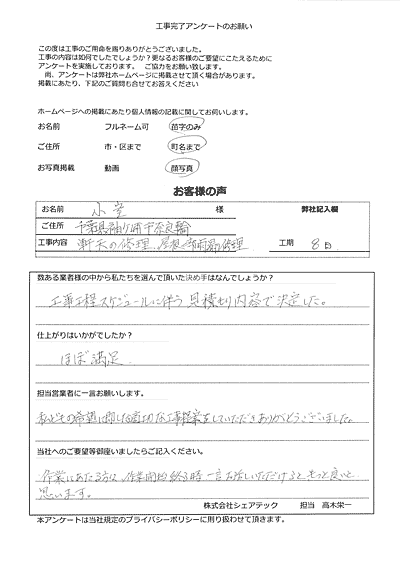 工事完了アンケートのお願い
この度は工事のご用命を賜りありがとうございました。
工事の内容は如何でしたでしょうか？更なるお客様のご要望にこたえるために
アンケートを実施しております。 ご協力をお願い致します。
尚、アンケートは弊社ホームページに掲載させて頂く場合があります。
掲載にあたり、下記のご質問も合せてお答えください
ホームページへの掲載にあたり個人情報の記載に関してお伺いします。
お名前 フルネーム可 苗字のみ
ご住所 市・区まで 町名まで
お写真掲載 動画 顔写真
お客様の声
お名前 様 弊社記入欄
ご住所 千葉県袖ケ浦市奈良輪
工事内容 軒天の修理、屋根 修理 工期 8日
数ある業者様の中から私たちを選んで頂いた決め手はなんでしょうか？
工事工程スケジュールに伴う見積もり内容で決定した。
仕上がりはいかがでしたか？
ほぼ満足
担当営業者に一言お願いします。
私どもの希望に即した適切な工事提案をしていただきありがとうございました。
当社へのご要望等御座いましたらご記入ください。
作業にあたる方は、作業開始終了時一言お話しいただけるともっと良いと
思います。
株式会社シェアテック 担当 高木栄一
本アンケートは当社規定のプライバシーポリシーに則り扱わせて頂きます。